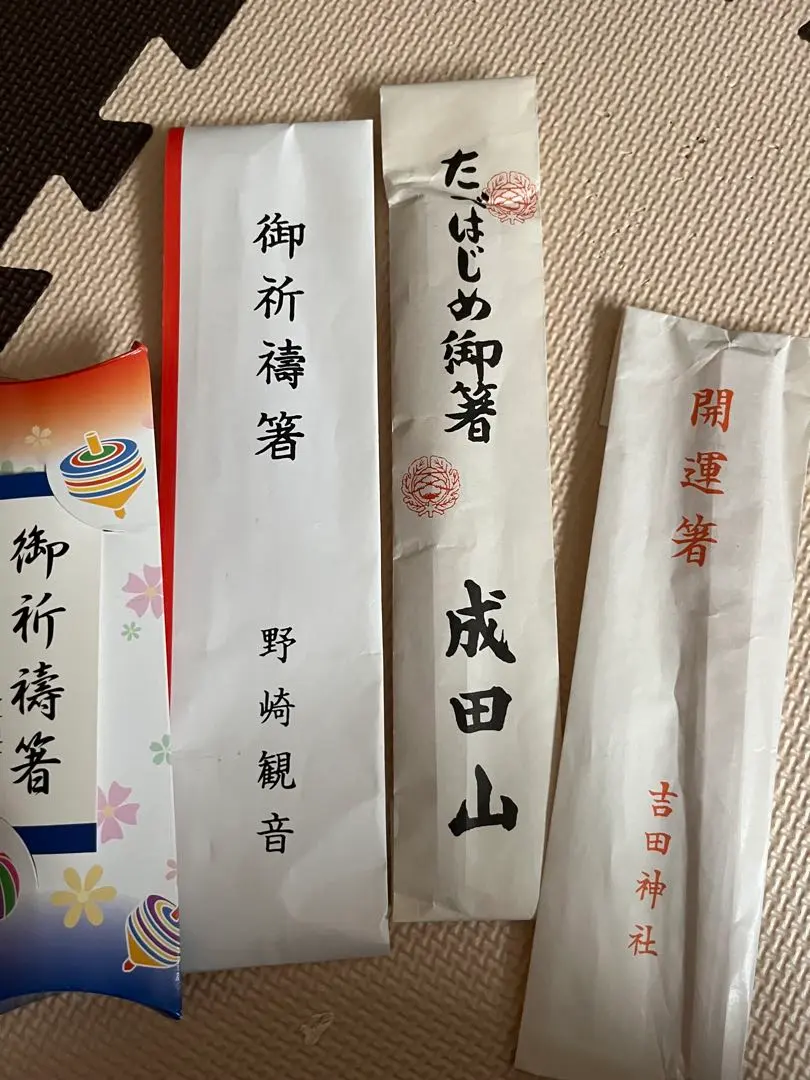 御祈禱箸
御祈禱箸
野崎観音
たべはじめ御箸
成田山
開運箸
吉田神社